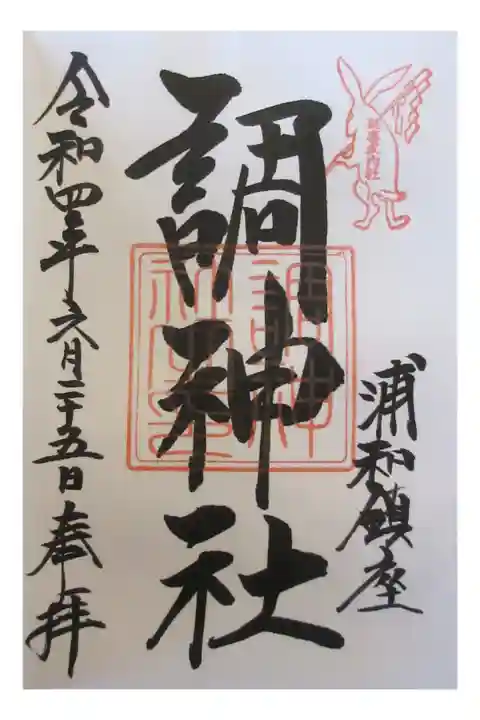 延喜式内社
浦和鎮座
調神社
令和四年六月二十五日奉拝